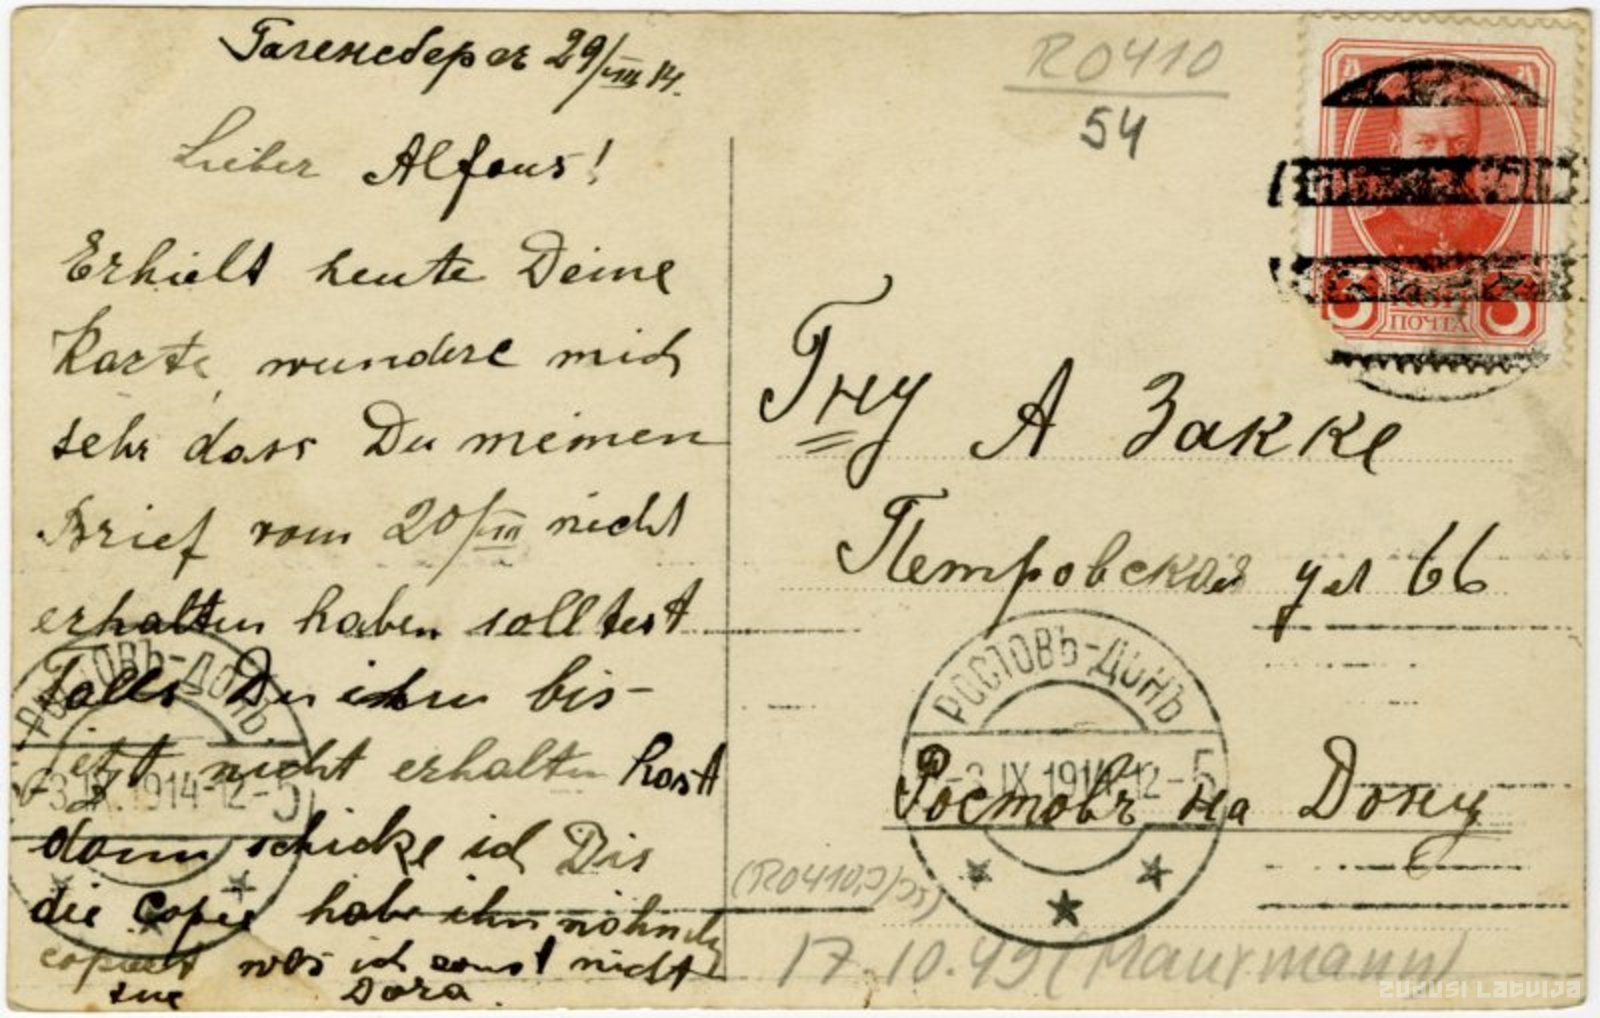 Гагенсберг 29/VIII 14.
Lieber Alfons!
Erhielt heute Deine
Karte, wundere mich
sehr dass Du meinen
Brief vom 20/VIII nicht
erhalten haben solltest
Falls Du ihn bis-
jetzt nicht erhalten hast
dann schicke ich Dir
die Copie habe ihn nähmlich
copiert was ich sonst nicht
tue Dora.
R0410
54
3 КОП 3
ПОЧТА
Гну А Закке
Петровская ул 66
Ростовъ на Дону
РОСТОВЪ-ДОНЪ
-3 IX 1914-12-5
РОСТОВЪ-ДОНЪ
-3 IX 1914-12-5
17.10.49 (Maurmann)
ZUDUSI LATVIJA